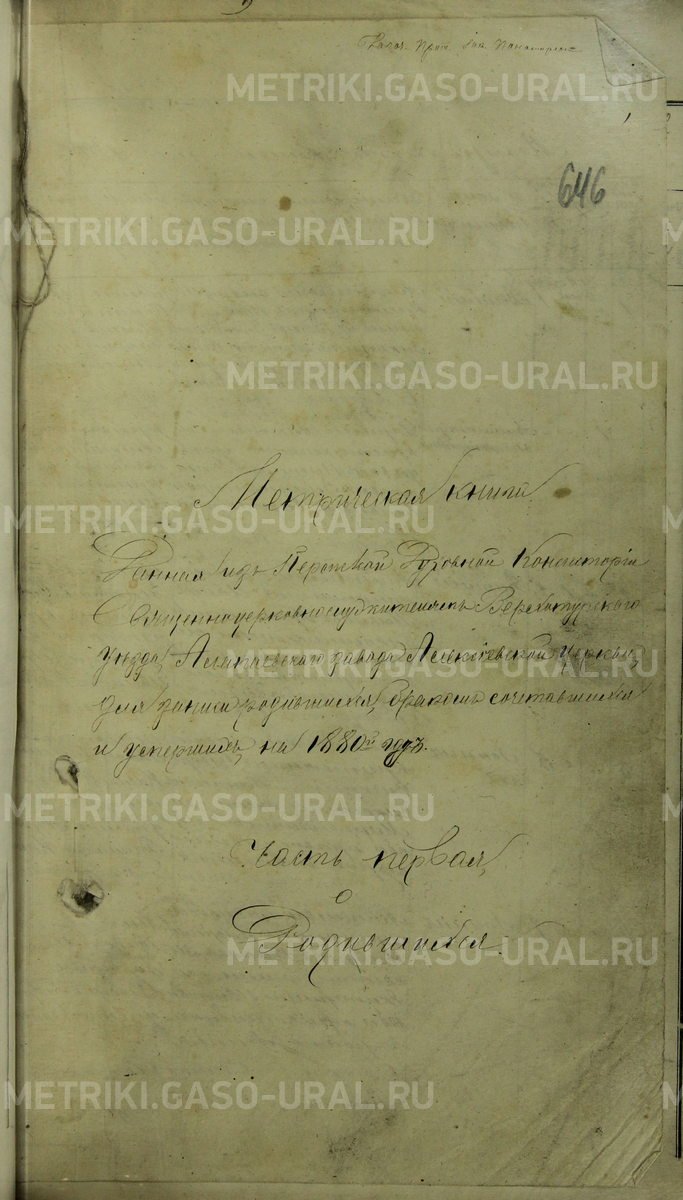 646
Метрическая книга
Данная изъ Пермской Духовной Консисторіи
Священноцерковнослужителямъ Верхотурскаго
уѣзда, Алапаевскаго завода Алексіевской церкви,
для записи родившихся, бракомъ сочетавшихся
и умершихъ, на 1880й годъ.
Часть первая,
о
Родившихся.
METRIKI.GASO-URAL.RU
METRIKI.GASO-URAL.RU
METRIKI.GASO-URAL.RU
METRIKI.GASO-URAL.RU
METRIKI.GASO-URAL.RU
METRIKI.GASO-URAL.RU
METRIKI.GASO-URAL.RU
METRIKI.GASO-URAL.RU